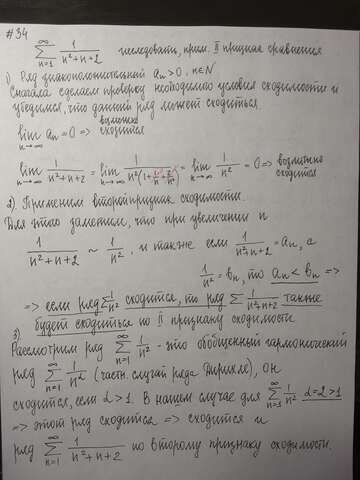 #34
∑_{n=1}^{∞} 1/(n²+n+2) исследовать, прим. II признак сравнения
1) Ряд знакоположительный aₙ>0, n∈N
Сначала сделаем проверку необходимого условия сходимости и
убедимся, что данный ряд может сходиться.
lim_{n→∞} aₙ = 0 => возможно сходится
lim_{n→∞} 1/(n²+n+2) = lim_{n→∞} 1/(n²(1+1/n+2/n²)) = lim_{n→∞} 1/n² = 0 => возможно сходится
2). Применим второй признак сходимости.
Для этого заметим, что при увеличении n
1/(n²+n+2) ~ 1/n², и также если 1/(n²+n+2) = aₙ, а
1/n² = bₙ, то aₙ < bₙ =>
=> если ряд ∑1/n² сходится, то ряд ∑ 1/(n²+n+2) также
будет сходиться по II признаку сходимости.
3)
Рассмотрим ряд ∑_{n=1}^{∞} 1/n² - это обобщенный гармонический
ряд ∑_{n=1}^{∞} 1/n^α (частн. случай ряда Дирихле), он
сходится, если α>1. В нашем случае для ∑_{n=1}^{∞} 1/n² α=2>1
=> этот ряд сходится => сходится и
ряд ∑_{n=1}^{∞} 1/(n²+n+2) по второму признаку сходимости.